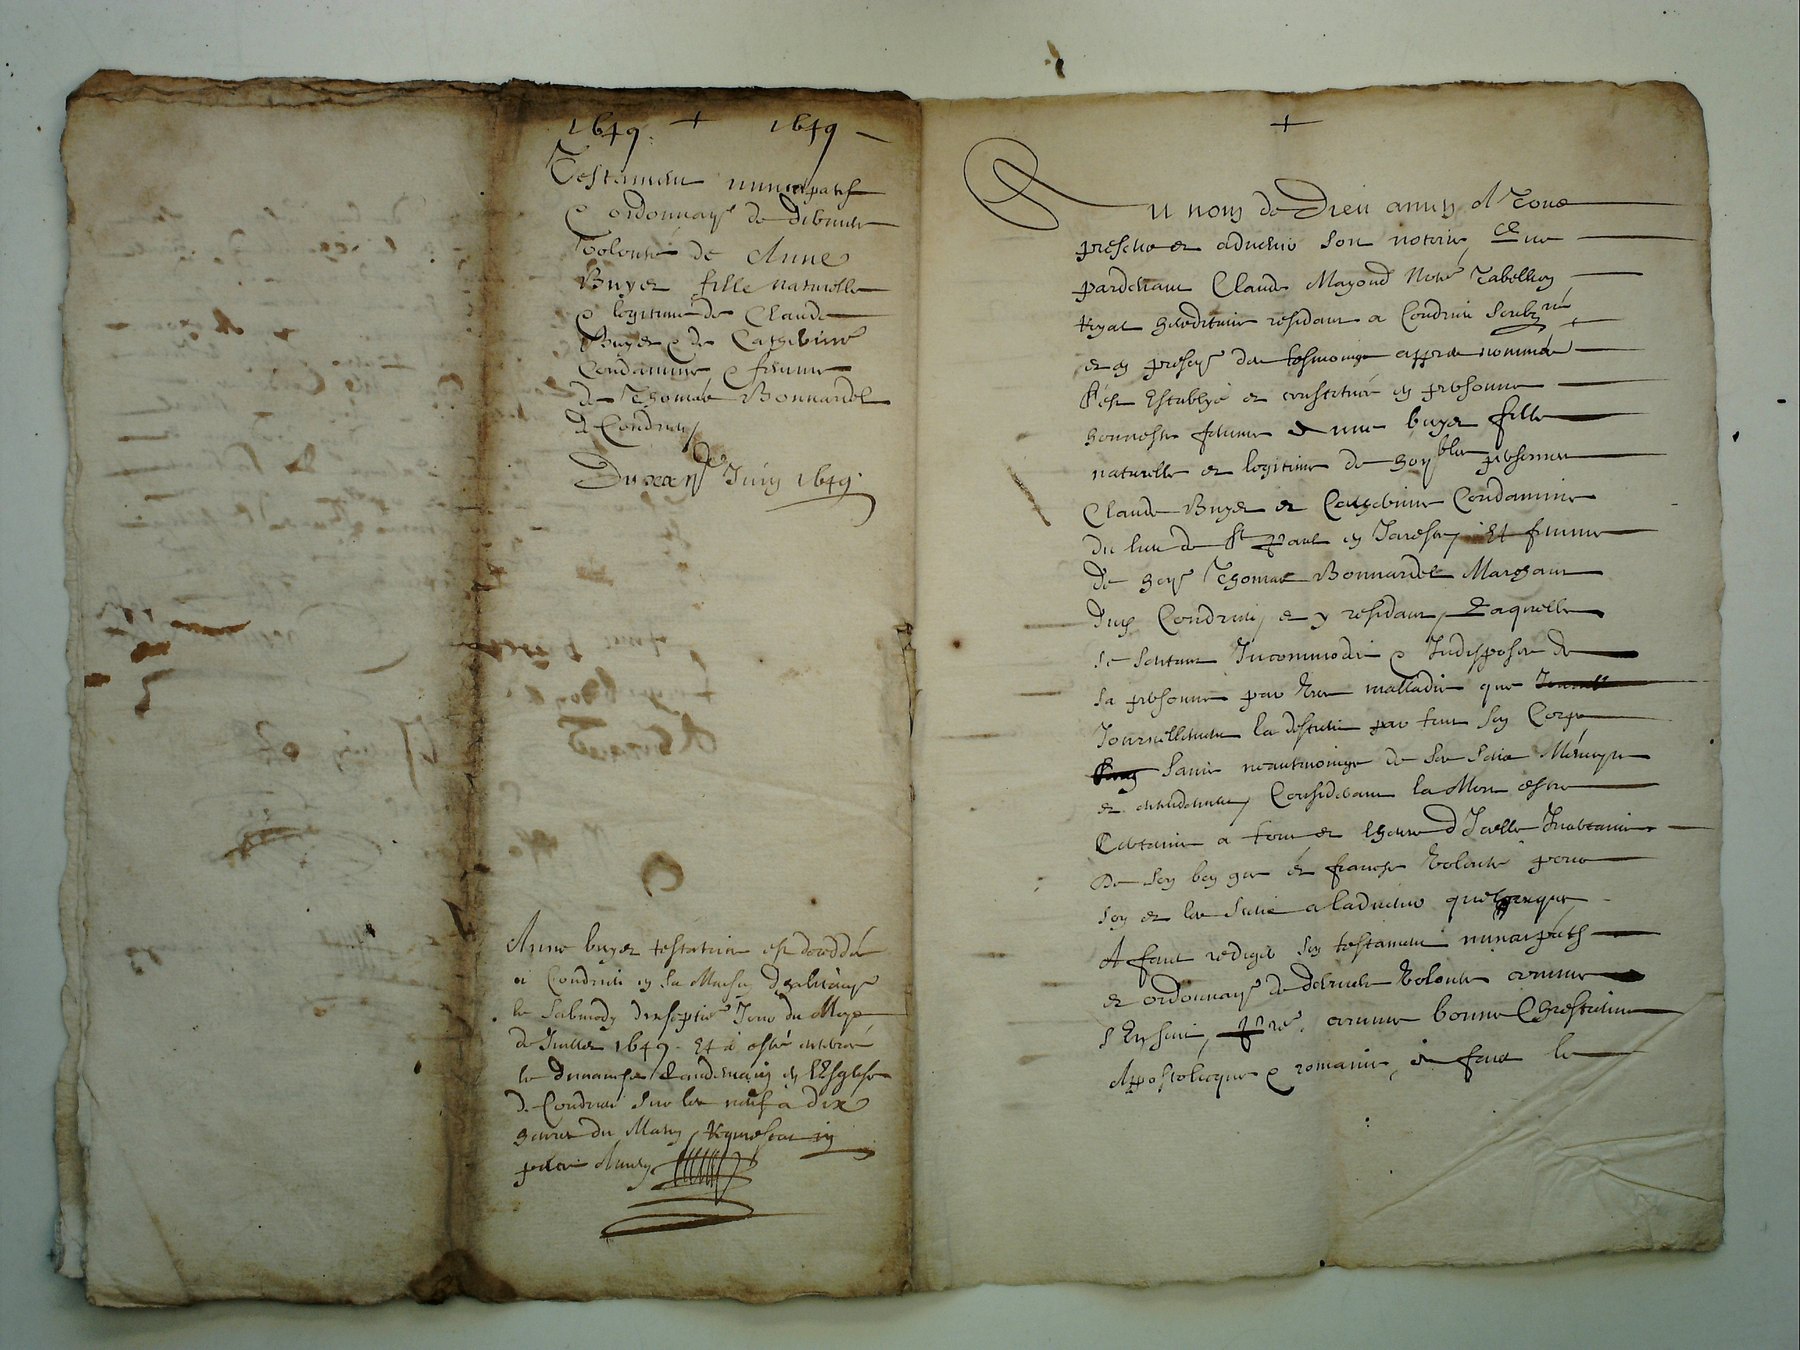 1649 + 1649
Testament nuncupatif
& ordonnance de derniere
Volonté de Anne
Buyer fille naturelle
& legitime de Claude
Buyer & de Catherine
Condamine & femme
de Thomas Bonnardel
de Condrieu
Du xxij Juin 1649
Anne buyer testatrice est decedée
a Condrieu en sa Maison d'habitaon
le Sabmedy dixseptie Jour du Moys
de Juillet 1649. Et a esté enterrée
le dimanche Landemain en l'Esglise
de Condrieu sur les neuf a dix
heures du Matin, Requiescat in
pace Amen
+
Au nom de Dieu amen A Tous
presens et advenir soit notoire, Que
pardevant Claude Mayoud Notre Tabellion
Royal hereditaire residant a Condrieu soubzné
et en presence des tesmoings appres nommés
s'est Establye et constituée en personne
honneste femme Anne buyer fille
naturelle et legitime de honbles personnes
Claude Buyer et Catherine Condamine
du lieu de St Paul en Jarestz, Et femme
de hon Thomas Bonnardel Marchant
dud Condrieu, et y residant, Laquelle
se sentant Incommodée & Indisposée de
sa personne par Une malladie que
Journellement la destient par tout son Corps
saine neantmoings de ses sens Memoyre
et entendement, Considerant la Mort estre
Certaine a tous et lheure d'Icelle Incertaine
De son bon gre et franche Volonté pour
soy et les siens a ladvenir quelconques
A faict rediger son testament nuncupatif
et ordonnance de derniere Volonté comme
s'Ensuit, comme bonne Chrestienne
Appostolicque & romaine, a faict le